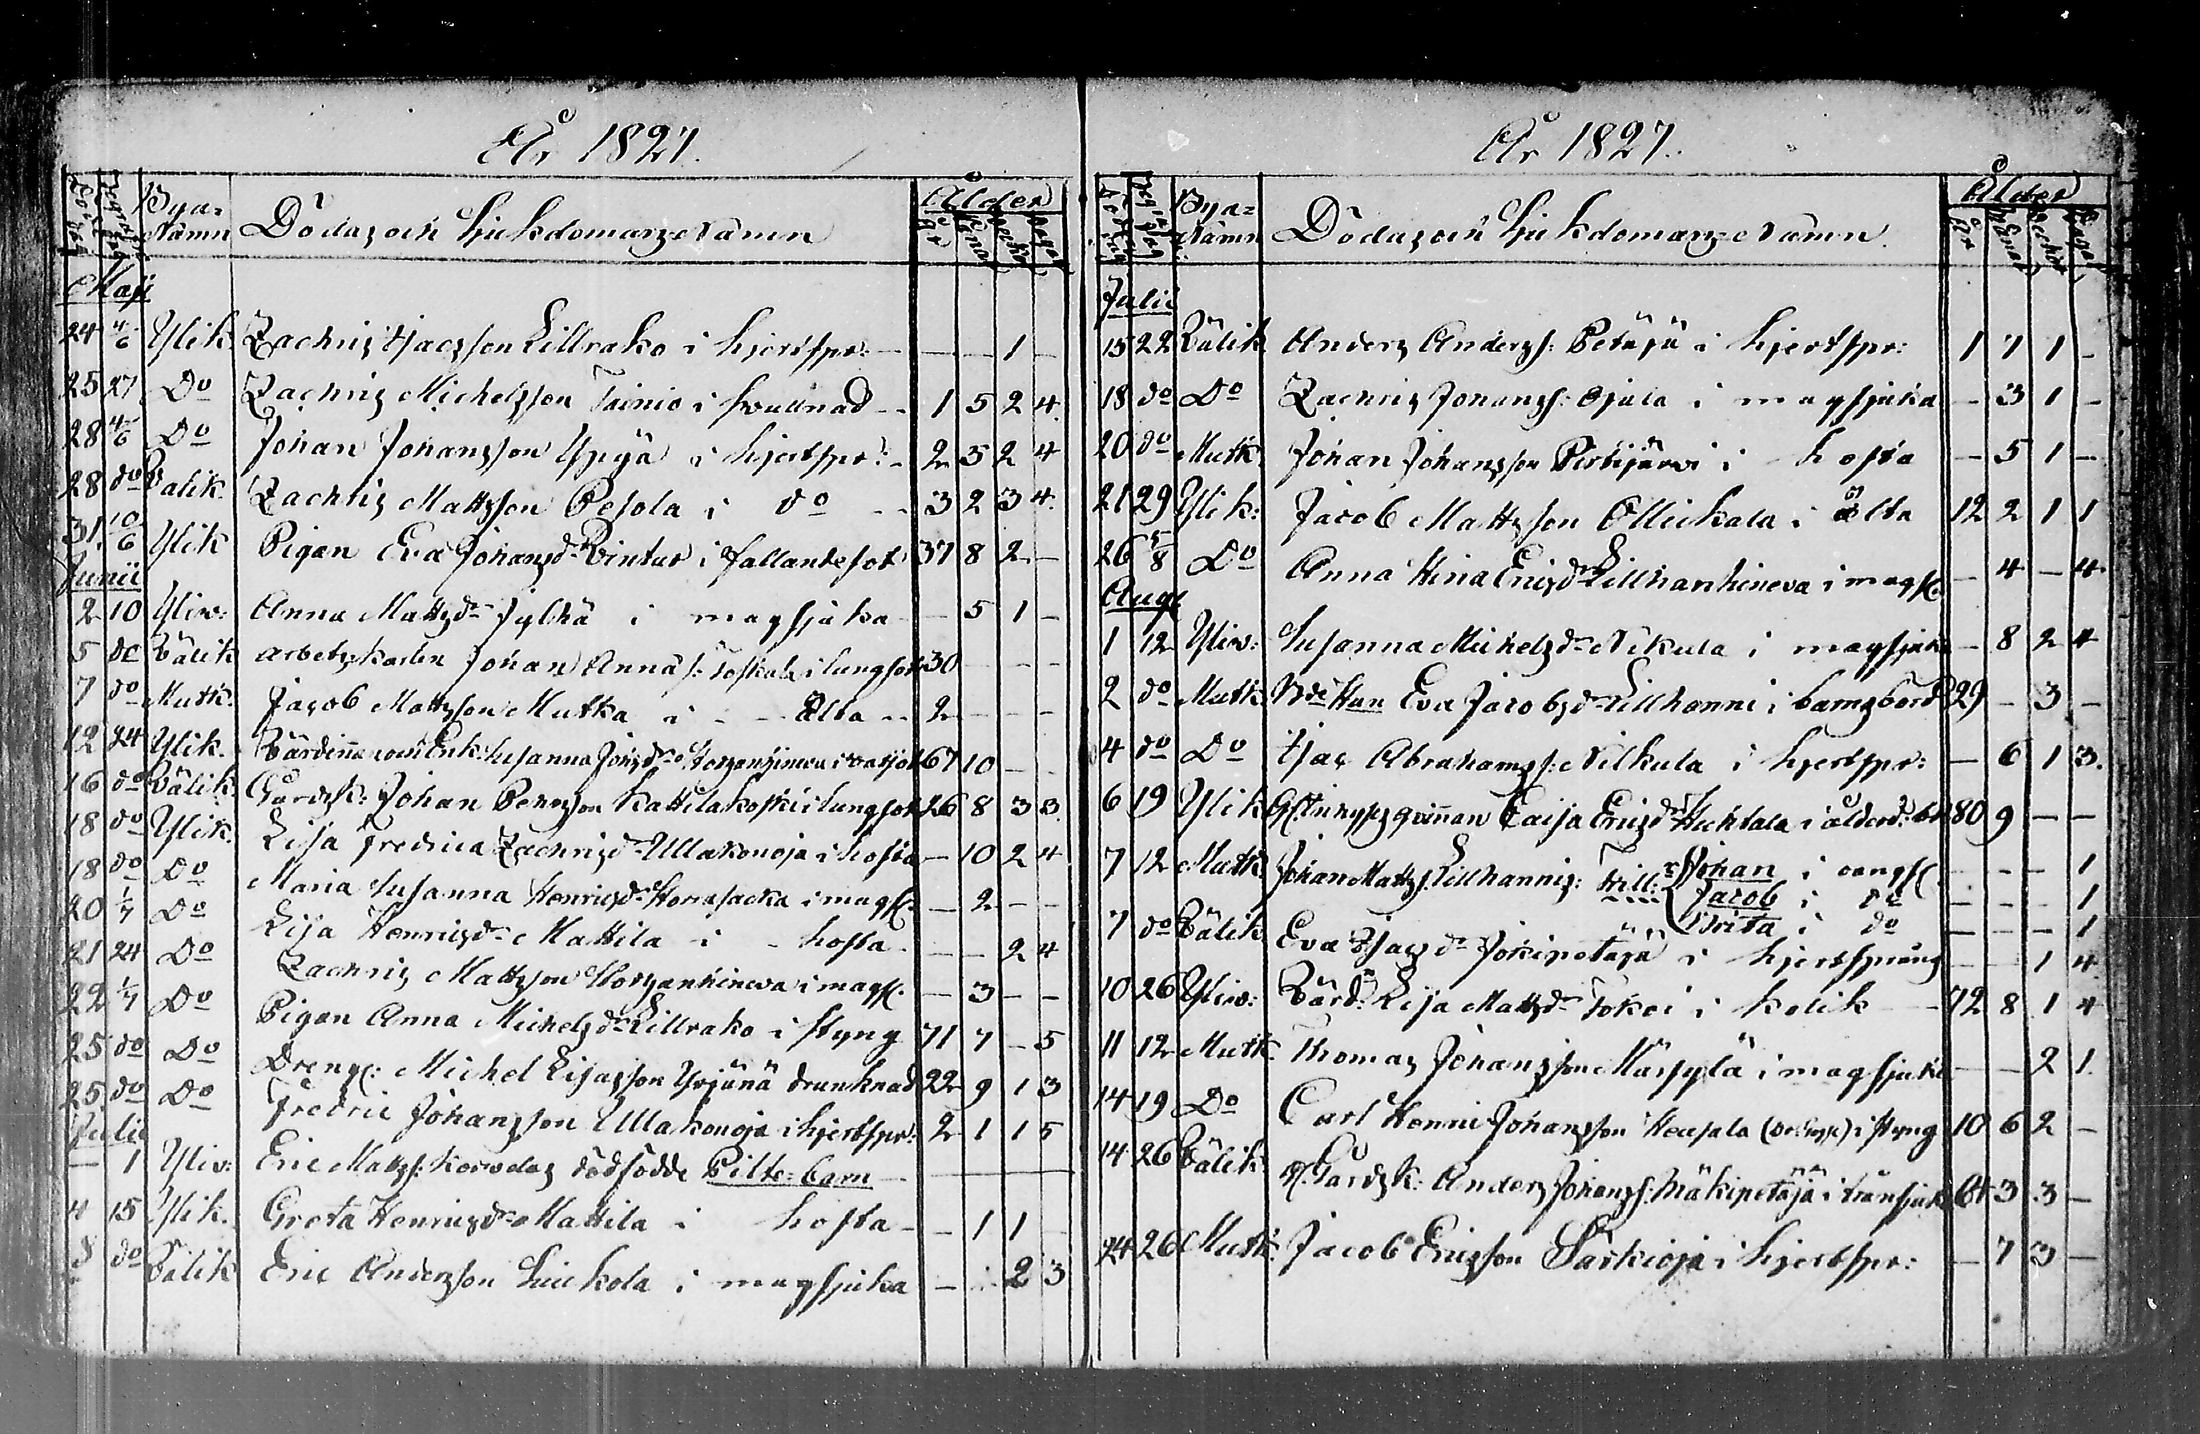 År 1827.
Döde dag Begrafn. dag Bya=Namn Dödas och Sjukdomars Namn Ålder År Månad Veckor Dagar
Maji
24 4/6 Ylik. Zachris Isacsson Lillrako i hjertspr: - - - 1 -
25 27 Do Zachris Michelsson Tainio i svullnad - - 1 5 2 4.
28 4/6 Do Johan Johansson Yppä i hjertspr: - 2 5 2 4
28 do Välik. Zachris Mattsson Pesola i do - - 3 2 3 4.
31. 10/6 Ylik Pigan Eva Johansdr Vintur i fallandesot 37 8 2 -
Junii
2 10 Yliv: Anna Mattsdr Jylhä i magsjuka - 5 1 -
5 do Välik arbetskarlen Johan Annäs: Toskala i lungsot 30 - - -
7 do Mutk. Jacob Mattsson Mutka i - - Ålta - - 2 - - -
12 24 Ylik. Värdinnan och Enk: Susanna Jönsdr Horzanhineva i vatsot 67 10 - -
16 do Välik: Gårdsk: Johan Persson Kattilakoski i lungsot 26 8 3 3.
18 do Ylik. Lisa Fredrica Zachrisdr Ullakonoja i hosta - 10 2 4
18 do Do Maria Susanna Henricsdr Hornsacka i mags: - 2 - -
20 1/7 Do Lisa Henricsdr Mattila i - hosta - - - 2 4
21 24 Do Zachris Mattsson Horzanhineva i mags. - 3 - -
22 1/7 Do Pigan Anna Michelsdr Lillrako i styng 71 7 - 5
25 do Do Drengs: Michel Eliasson Yrjänä drunknad 22 9 1 3
25. do Do Fredric Johansson Ullakonoja i hjertspr: 2 1 1 5
Julii
- 1 Yliv: Eric Matts: Korvelas dödfödde Pilte=barn -
4 15 Ylik. Greta Henricsdr Mattila i hosta - - 1 1
8 do Välik Eric Andersson Luikola i magsjuka - - 2 3
År 1827.
Döde dag Begr. dag Bya=Namn Dödas och Sjukdomars Namn. Ålder År Månad Veckor Dagar
Julii
15 22 Välik Anders Anderss: Petäjä i hjertspr: 1 7 1 -
18 do Do Zachris Johanss: Ojala i magsjuka - 3 1 -
20 do Mutk. Johan Johansson Pertijärvi i hosta - 5 1 -
21 29 Ylik: Jacob Mattsson Ollickala i ålta 12 2 1 1
26 5/8 Do Anna Hina Ericsdr Lillhanhineva i mags: - 4 - 4
Augs
1 12 Yliv: Susanna Michelsdr Nikula i magsjuka - 8 2 4
2 do Mutk. Bdehan Eva Jacobsdr Lillhanni i barnsbörd 29 - 3 -
4 do Do Isac Abrahamss: Nilkula i hjertspr: - 6 1 3.
6 19 Ylik Caisa Ericsdr Huhtala i ålderd: br 80 9 - -
7 12 Mutk. Johan Matts: Lillhannis: Trill: Johan i bangs: - - - 1
Jacob i do - - - 1
Brita i do - - - 1
7 do Välik Eva Isacsdr Jokipetäjä i hjertsprång - - 1 4
10 26 Yliv: Värd: Lisa Mattsdr Tokoi i kolik - - 72 8 1 4
11 12 Mutk. Thomas Johansson Märsylä i magsjuka - - 2 1.
14 19 Do Carl Henric Johansson Heusala i styng 10 6 2 -
14 26 Välik: Gårdsk: Anders Johanss: Mäkipetäjä i transjuk 64 3 3 -
24 26 Mutk: Jacob Ericsson Särkioja i hjertspr: - 7 3 -